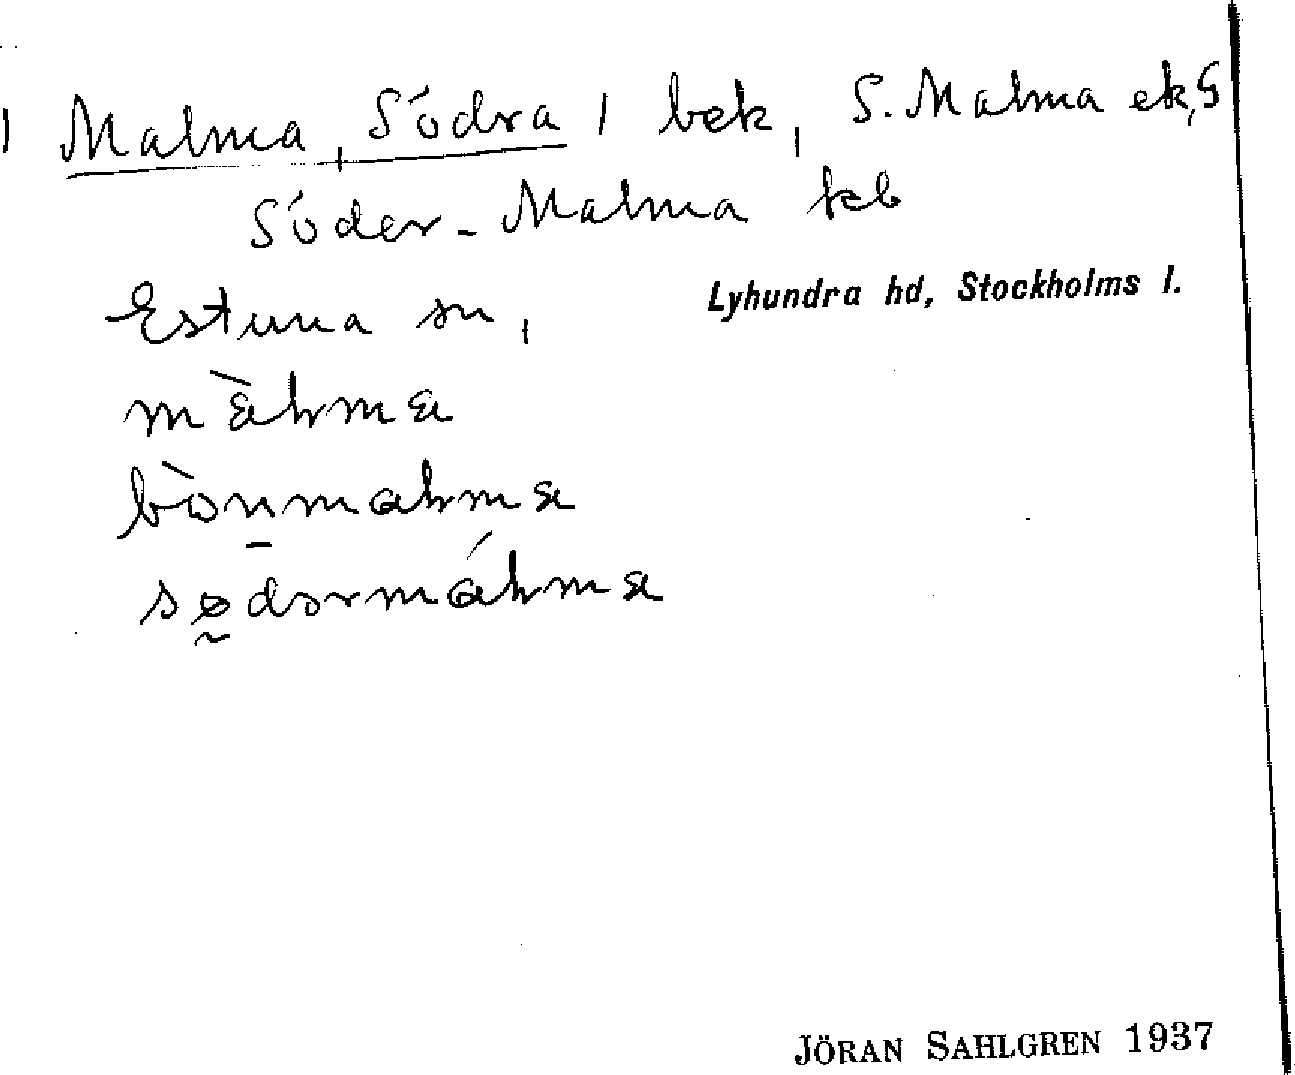 Malma, Södra / bek, S. Malma ek, S
Söder-Malma kb
Estuna sn, Lyhundra hd, Stockholms l.
màlma
bònmalma
sødərmálma
JÖRAN SAHLGREN 1937